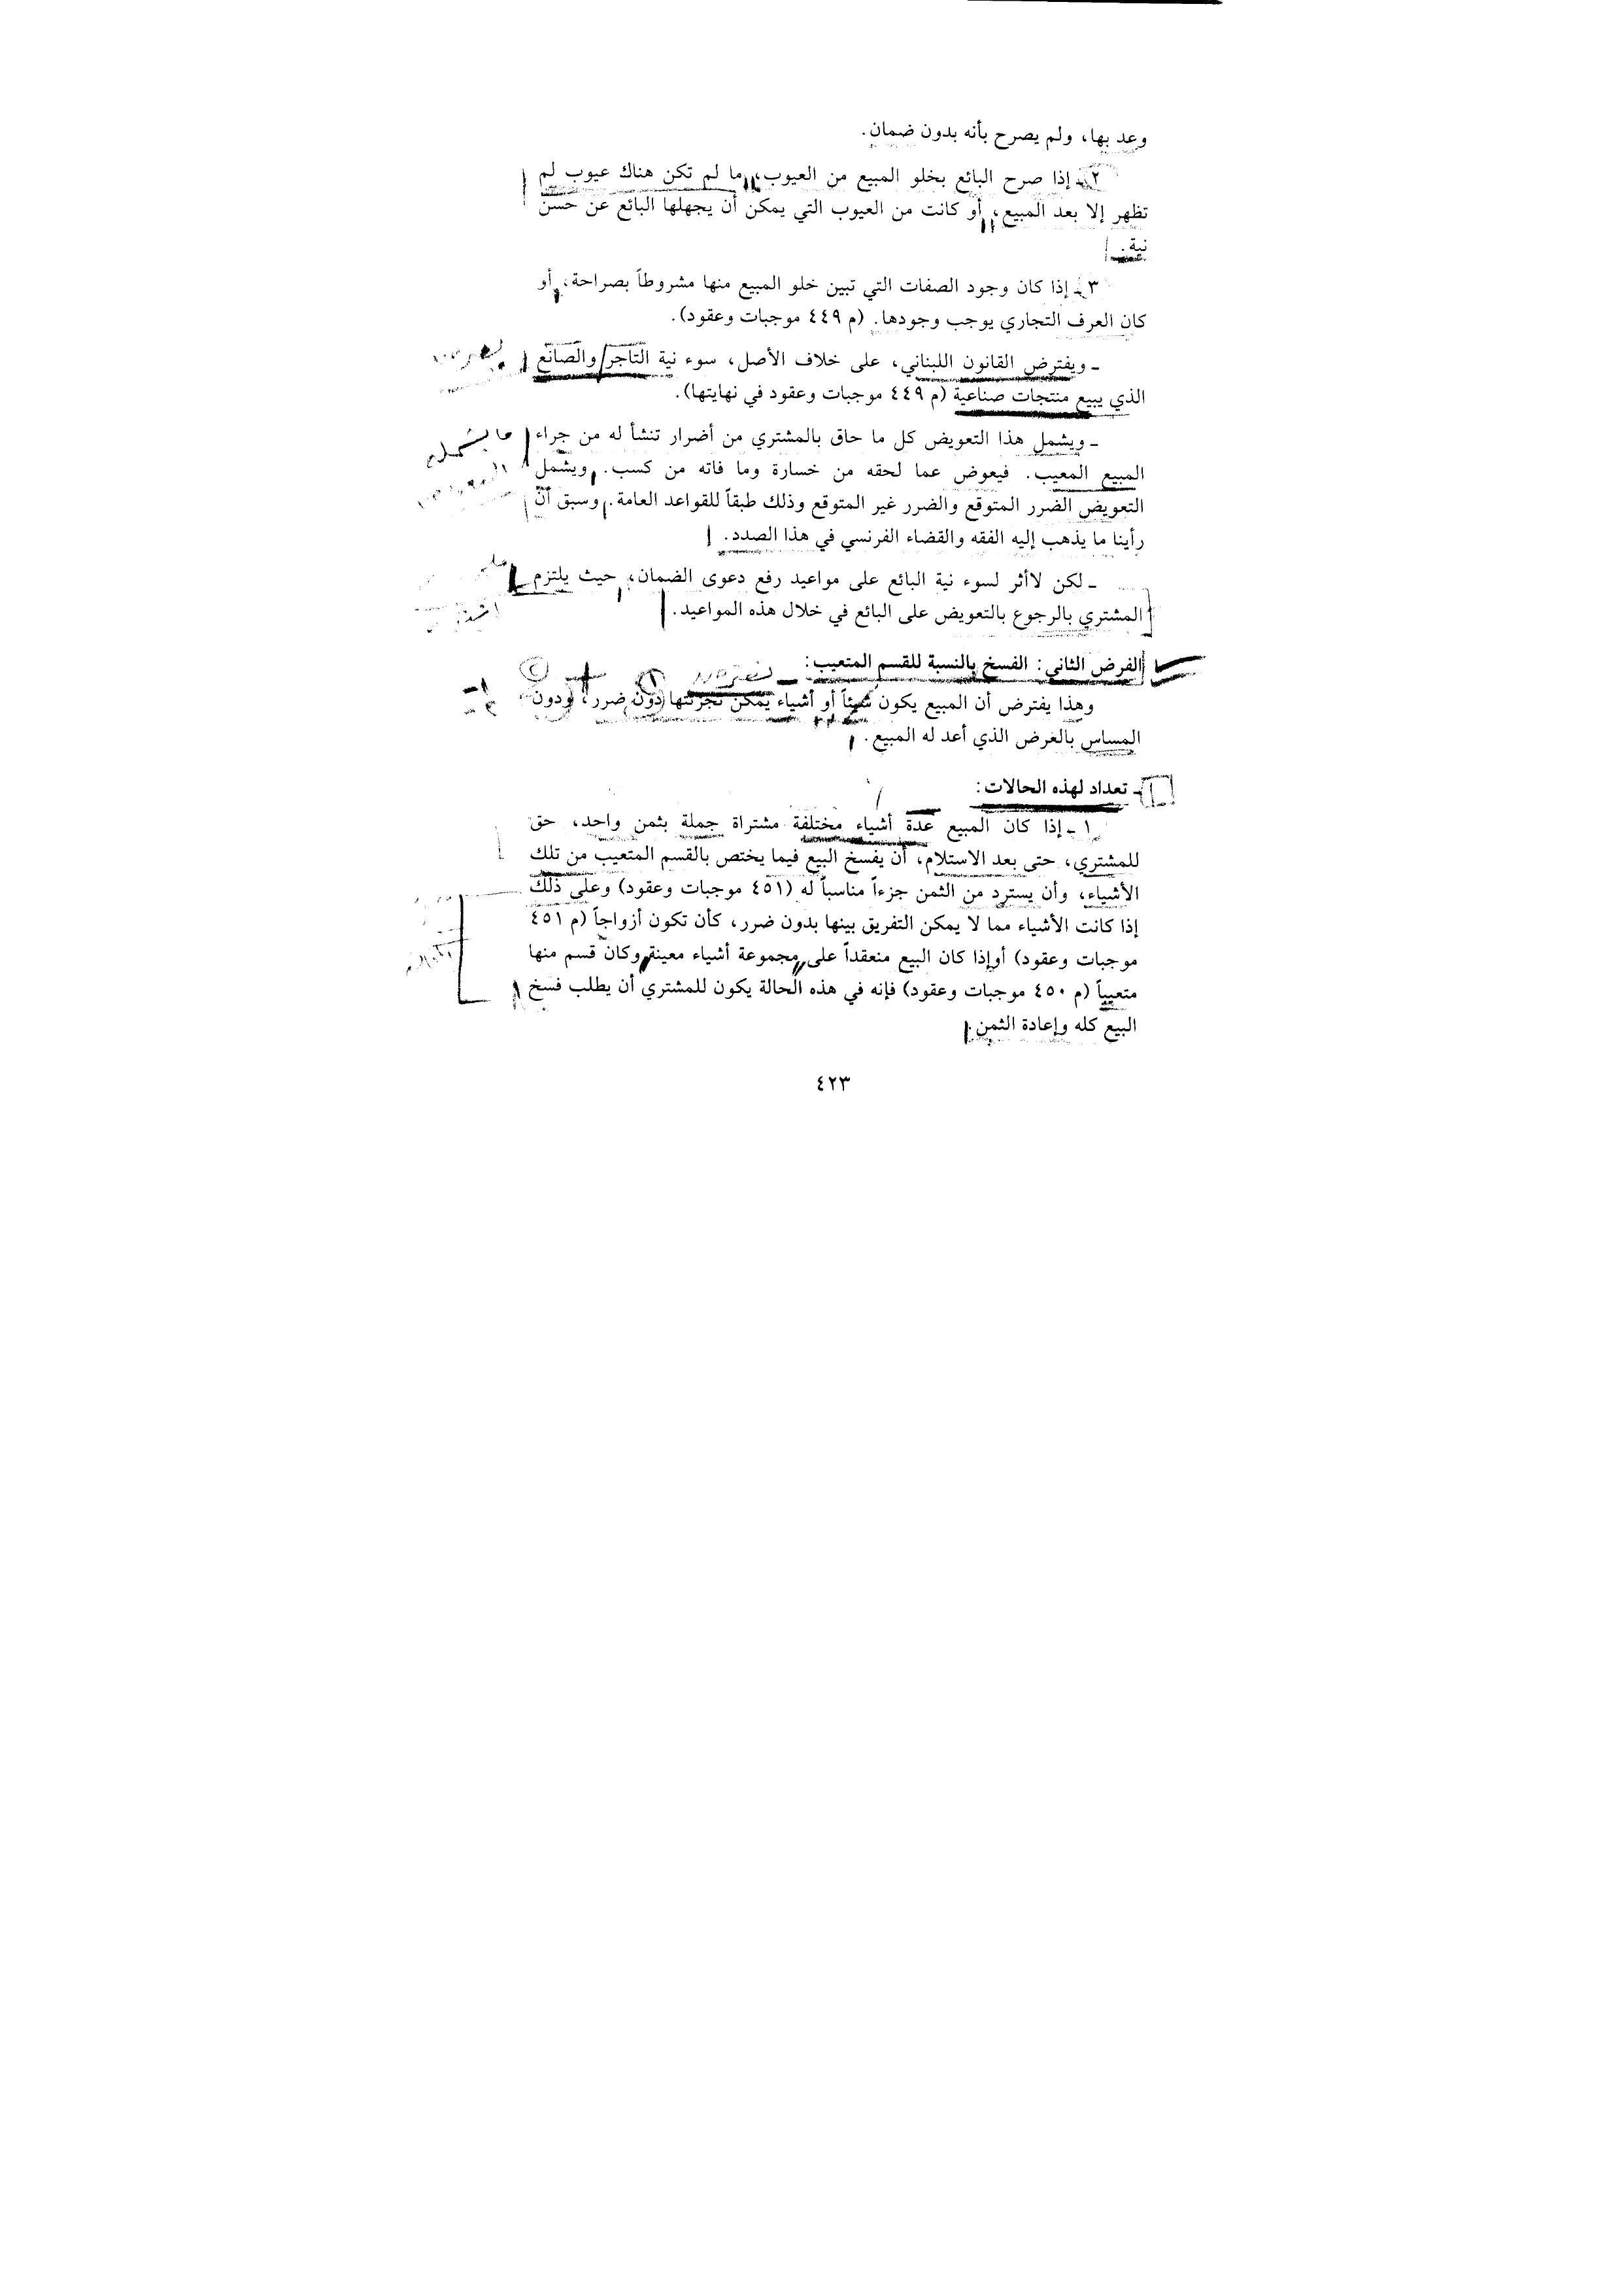 وعد بها، ولم يصرح بأنه بدون ضمان.
٢ ـ إذا صرح البائع بخلو المبيع من العيوب، ما لم تكن هناك عيوب لم
تظهر إلا بعد المبيع، أو كانت من العيوب التي يمكن أن يجهلها البائع عن حسن
نية.
٣ ـ إذا كان وجود الصفات التي تبين خلو المبيع منها مشروطاً بصراحة، أو
كان العرف التجاري يوجب وجودها. (م ٤٤٩ موجبات وعقود).
ـ ويفترض القانون اللبناني، على خلاف الأصل، سوء نية التاجر والصانع
الذي يبيع منتجات صناعية (م ٤٤٩ موجبات وعقود في نهايتها).
ـ ويشمل هذا التعويض كل ما حاق بالمشتري من أضرار تنشأ له من جراء
المبيع المعيب. فيعوض عما لحقه من خسارة وما فاته من كسب. ويشمل
التعويض الضرر المتوقع والضرر غير المتوقع وذلك طبقاً للقواعد العامة. وسبق أن
رأينا ما يذهب إليه الفقه والقضاء الفرنسي في هذا الصدد.
ـ لكن لاأثر لسوء نية البائع على مواعيد رفع دعوى الضمان، حيث يلتزم
المشتري بالرجوع بالتعويض على البائع في خلال هذه المواعيد.
الفرض الثاني: الفسخ بالنسبة للقسم المتعيب:
وهذا يفترض أن المبيع يكون شيئاً أو أشياء يمكن تجزئتها دون ضرر، ودون
المساس بالغرض الذي أعد له المبيع.
ـ تعداد لهذه الحالات:
١ ـ إذا كان المبيع عدة أشياء مختلفة مشتراة جملة بثمن واحد، حق
للمشتري، حتى بعد الاستلام، أن يفسخ البيع فيما يختص بالقسم المتعيب من تلك
الأشياء، وأن يسترد من الثمن جزءاً مناسباً له (٤٥١ موجبات وعقود) وعلى ذلك
إذا كانت الأشياء مما لا يمكن التفريق بينها بدون ضرر، كأن تكون أزواجاً (م ٤٥١
موجبات وعقود) أوإذا كان البيع منعقداً على مجموعة أشياء معينة وكان قسم منها
متعيباً (م ٤٥٠ موجبات وعقود) فإنه في هذه الحالة يكون للمشتري أن يطلب فسخ
البيع كله وإعادة الثمن.
٤٢٣